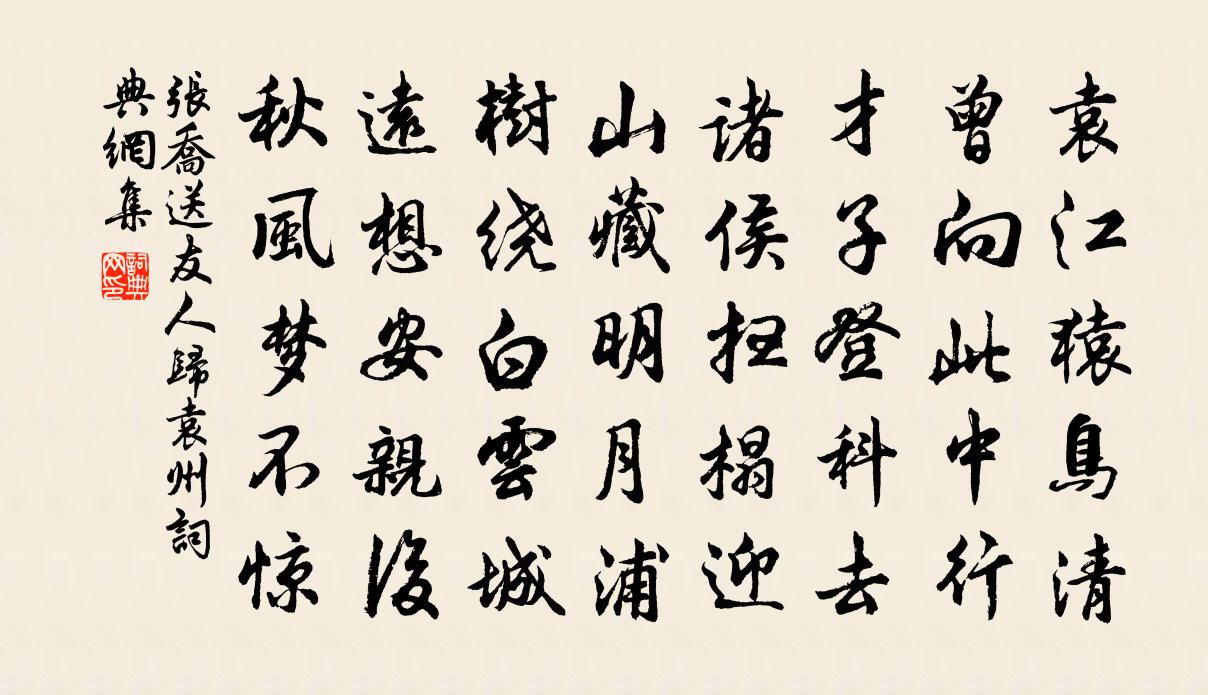 袁江猿鳥清
曾向此中行
才子登科去
诸侯扫榻迎
山藏明月浦
樹绕白雲城
遠想安親後
秋風梦不惊
張喬送友人歸袁州詞
典網集
詞典網印